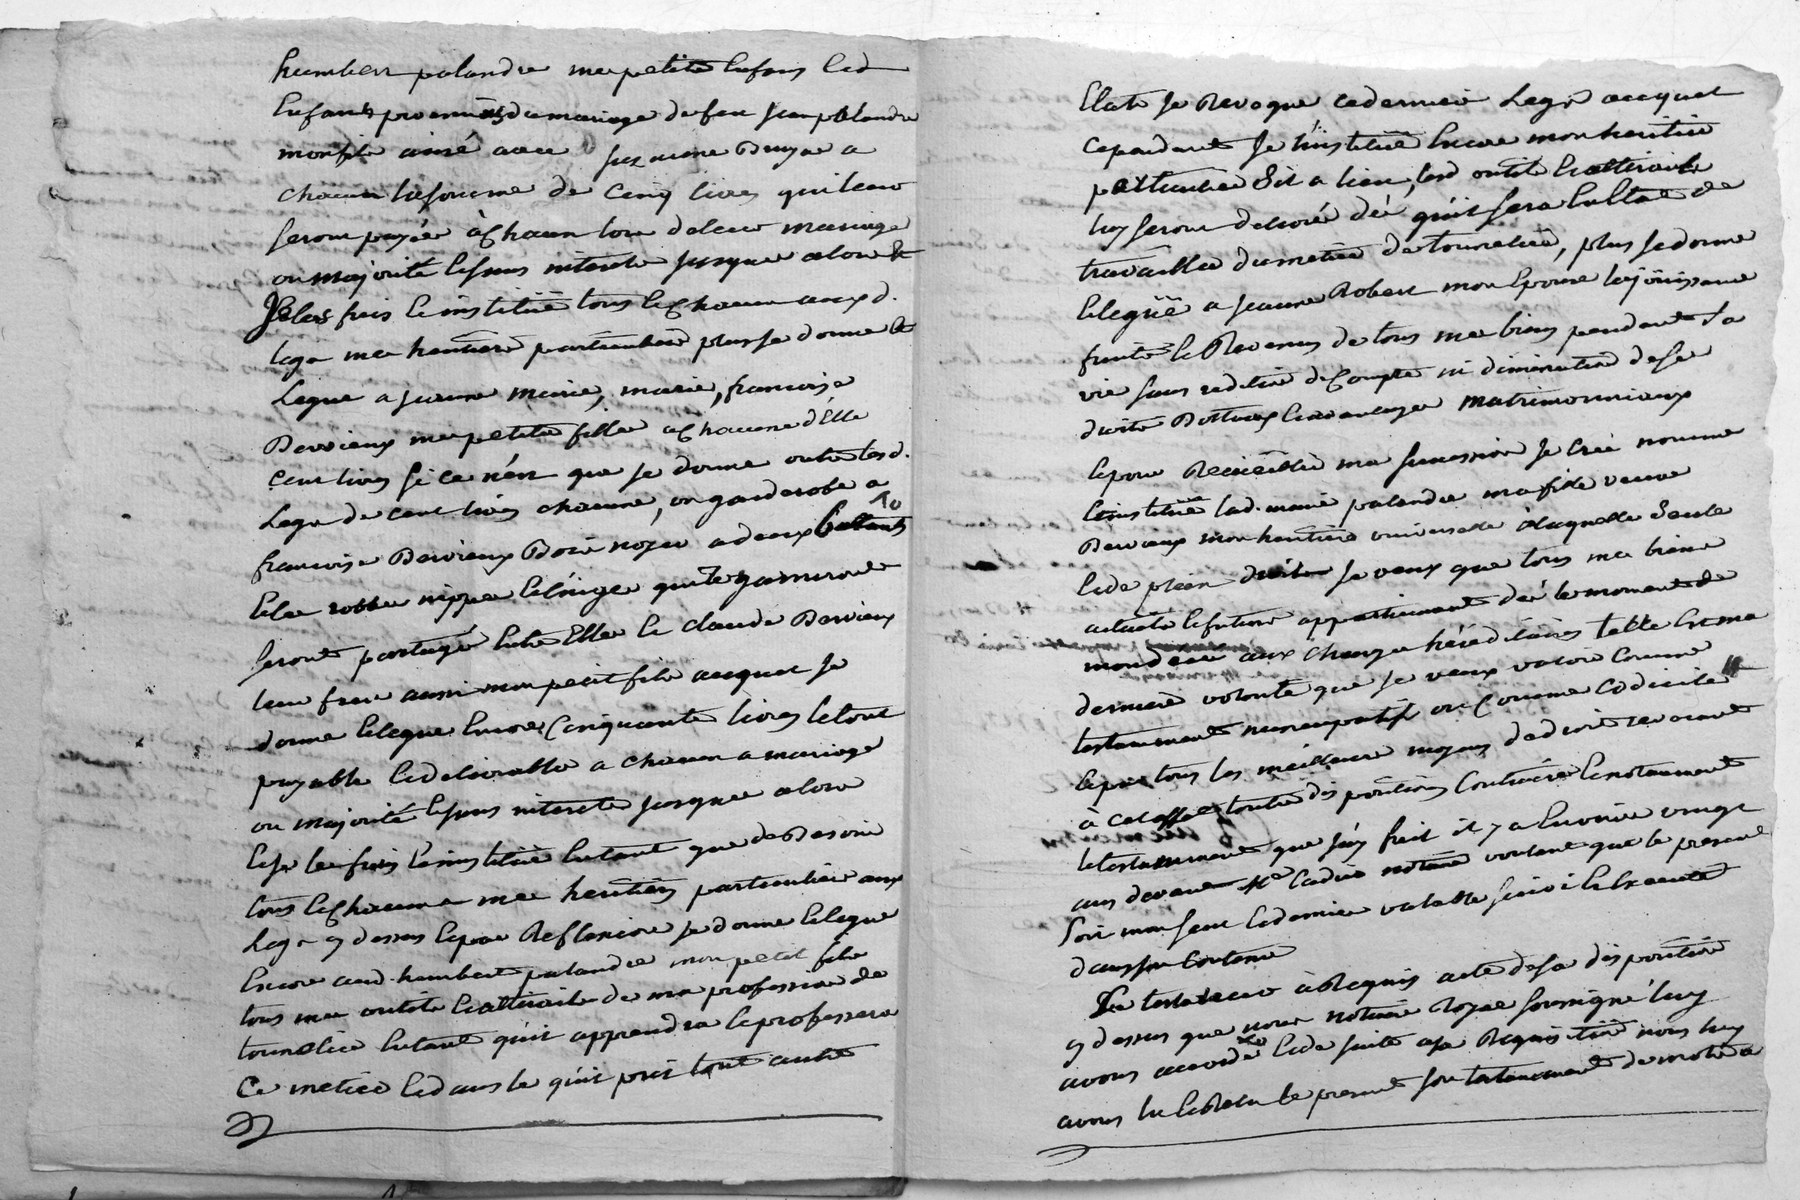 humbert palandre mes petits enfans led
enfans provenus du mariage de feu jean palandre
mon fils ainé avec suzanne Bruyas a
chacun la somme de cinq livres qui leur
seront payée à chacun lors de leur mariage
ou majorité et sans interets jusques alors et
Je les fais et institüe tous et chacun auxd.
legs mes heritiers particuliers plus je donne et
Legue a jeanne marie, marie, francoise
Dervieux mes petites filles a chacune d'Elle
cent livres si ce n'est que je donne outre lesd.
Legs de cent livres chacune, un garderobe a
francoise Dervieux Bois noyer a deux battants
et les robbes nippes et linge qui le garniront
seront partagé entre Elle et claude Dervieux
leur frere aussi mon petit fils auquel je
donne et legue encore Cinquante livres le tout
payable et delivrable a chacun a mariage
ou majorité et sans interets jusques alors
et je les fais et institüe entant que de Besoin
tous et chacuns mes heritiers particuliers aux
Legs cy dessus et par Reflexion je donne et legue
Encore aud. humbert palandre mon petit fils
tous mes outils et attirails de ma profession de
tourelier entant qu'il apprendra et professera
Ce metier et dans le cas qu'il prit tout autre
Etat je Revoque ce dernier Legs auquel
cependant Je l'institüe Encore mon heritier
particulier s'il a lieu, lesd outils et attirails
luy seront delivré dés qu'il sera En Etat de
travailler du metier de tourelier, plus je donne
et legüe a jeanne Robert mon Epouse la jouissance
fruits et Revenus de tous mes biens pendant sa
vie sans reddition de Compte ni diminution de ses
droits Dottaux et avantages matrimonniaux
et pour Recüeillir ma succession Je Crée nomme
et institüe lad. marie palandre ma fille veuve
Dervieux mon heritiere universelle à laquelle seule
et de plein droit je veux que tous mes biens
actuels et futurs appartiennent dés le moment de
mon deces aux charges héréditaires telle Est ma
derniere volonté que je veux valoir Comme
testament nuncupatif ou Comme codicile
et par tous les meilleurs moyens de droit revocant
à cet effet toutes dispositions Contraires et notamment
le testament que j'ay fait il y a Environ vingt
ans devant Me Cadier notaire voulant que le present
soit mon seul et dernier valable suivi et Executé
dans son Contenu
Le testateur à Requis acte de sa disposition
cy dessus que nous notaire Royal soussigné luy
avons accordé et de suite a sa Requisition nous luy
avons lu et Relu le present son testament de mot à